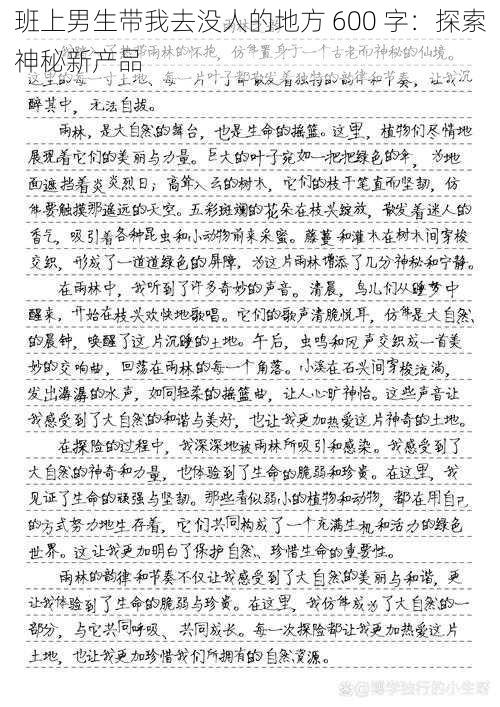 班上男生带我去没人的地方 600 字：探索
神秘新产品
雨林的怀抱，仿佛置身于一个古老而神秘的仙境。
这里的每一寸土地、每一片叶子都散发着独特的韵律和节奏，让我沉
醉其中，无法自拔。
雨林，是大自然的舞台，也是生命的摇篮。这里，植物们尽情地
展现着它们的美丽与力量。巨大的叶子宛如一把把绿色的伞，为地
面遮挡着炎炎烈日；高耸入云的树木，它们的枝干笔直而坚韧，仿
佛要触摸那遥远的天空。五彩斑斓的花朵在枝头绽放，散发着迷人的
香气，吸引着各种昆虫和小动物前来采蜜。藤蔓和灌木在树木间穿梭
交织，形成了一道道绿色的屏障，为这片雨林增添了几分神秘和宁静。
在雨林中，我听到了许多奇妙的声音。清晨，鸟儿们从睡梦中
醒来，开始在枝头欢快地歌唱。它们的歌声清脆悦耳，仿佛是大自然
的晨钟，唤醒了这片沉睡的土地。午后，虫鸣和风声交织成一首美
妙的交响曲，回荡在雨林的每一个角落。小溪在石头间穿梭流淌，
发出潺潺的水声，如同轻柔的摇篮曲，让人心旷神怡。这些声音让
我感受到了大自然的和谐与美好，也让我更加热爱这片神奇的土地。
在探险的过程中，我深深地被雨林所吸引和感染。我感受到了
大自然的神奇和力量，也体验到了生命的脆弱和珍贵。在这里，我
见证了生命的顽强与坚韧。那些看似弱小的植物和动物，都在用自己
的方式努力地生存着，它们共同构成了一个充满生机和活力的绿色
世界。这让我更加明白了保护自然、珍惜生命的重要性。
雨林的韵律和节奏不仅让我感受到了大自然的美丽与和谐，更
让我体验到了生命的脆弱与珍贵。在这里，我仿佛成为了大自然的一
部分，与它共同呼吸、共同成长。每一次探险都让我更加热爱这片
土地，也让我更加珍惜我们所拥有的自然资源。
@博学独行的小生呀